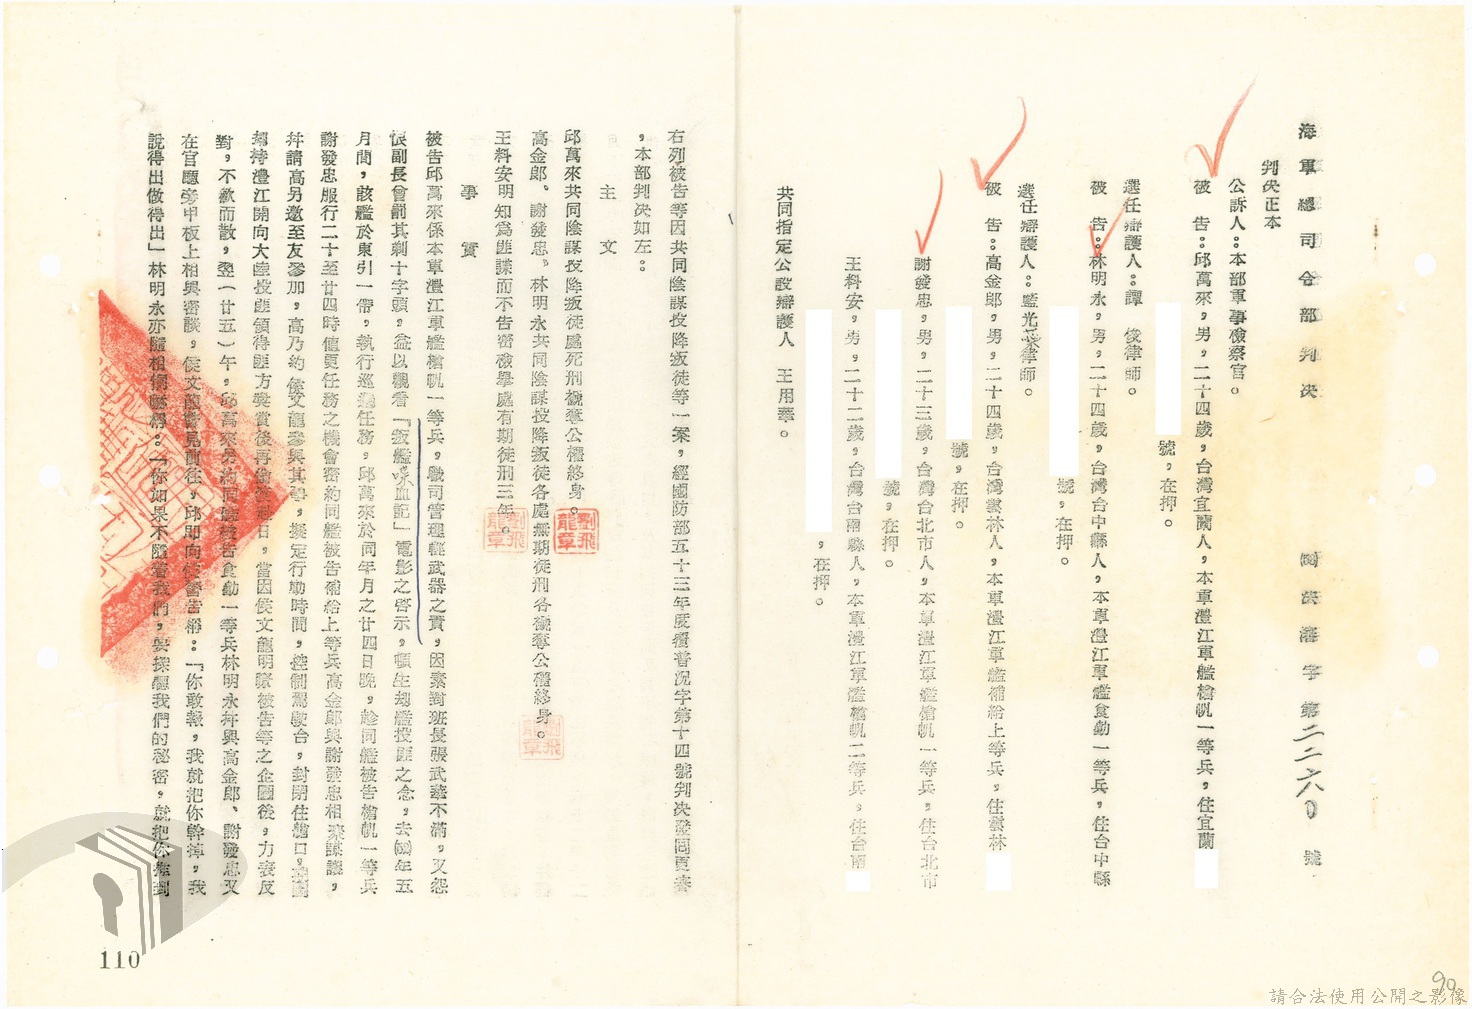 海軍總司令部判決
判決正本
公訴人：本部軍事檢察官。
被　告：邱萬來，男，二十四歲，台灣宜蘭人，本軍澧江軍艦槍帆一等兵，住宜蘭
號，在押。
選任辯護人：譚　俊律師。
被　告：林明永，男，二十四歲，台灣台中縣人，本軍澧江軍艦食勤一等兵，住台中縣
號，在押。
選任辯護人：藍光 律師。
被　告：高金郎，男，二十四歲，台灣雲林人，本軍澧江軍艦補給上等兵，住雲林
號，在押。
謝發忠，男，二十三歲，台灣台北市人，本軍澧江軍艦槍帆一等兵，住台北市
號，在押。
王料安，男，二十二歲，台灣台南縣人，本軍澧江軍艦槍帆二等兵，住台南
，在押。
共同指定公設辯護人　王用華。
右列被告等因共同陰謀投降叛徒等一案，經國防部五十三年度覆普況字第十四號判決發回更審
，本部判決如左：
主　文
邱萬來共同陰謀投降叛徒處死刑褫奪公權終身。
高金郎、謝發忠、林明永共同陰謀投降叛徒各處無期徒刑各褫奪公權終身。
王料安明知為匪諜而不告密檢舉處有期徒刑三年。
事　實
被告邱萬來係本軍澧江軍艦槍帆一等兵，職司管理輕武器之責，因素對班長張武華不滿，又怨
恨副長曾罰其剃十字頭，益以觀看「叛艦喋血記」電影之啓示，頓生刼艦投匪之念，去 年五
月間，該艦於東引一帶，執行巡邏任務，邱萬來於同年月之廿四日晚，趁同艦被告槍帆一等兵
謝發忠服行二十至廿四時値更任務之機會密約同艦被告補給上等兵高金郎與謝發忠相 謀議，
幷請高另邀至友參加，高乃約侯文龍參與其事，擬定行動時間，控制駕駛台，封閉住艙口，
刼持澧江開向大陸投匪領得匪方獎賞後再 日，當因侯文龍明瞭被告等之企圖後，力表反
對，不歡而散，翌（廿五）午，邱萬來另約同艦被告食勤一等兵林明永幷與高金郎、謝發忠又
在官廳旁甲板上相與密談，侯文龍 見前往，邱卽向侯警告稱：「你敢報，我就把你幹掉，我
說得出做得出」林明永亦隨相 稱：「你如果不隨着我們，要探聽我們的秘密，就把你推到
劉飛龍章
劉飛龍章
劉飛龍章
110
90
請合法使用公開之影像